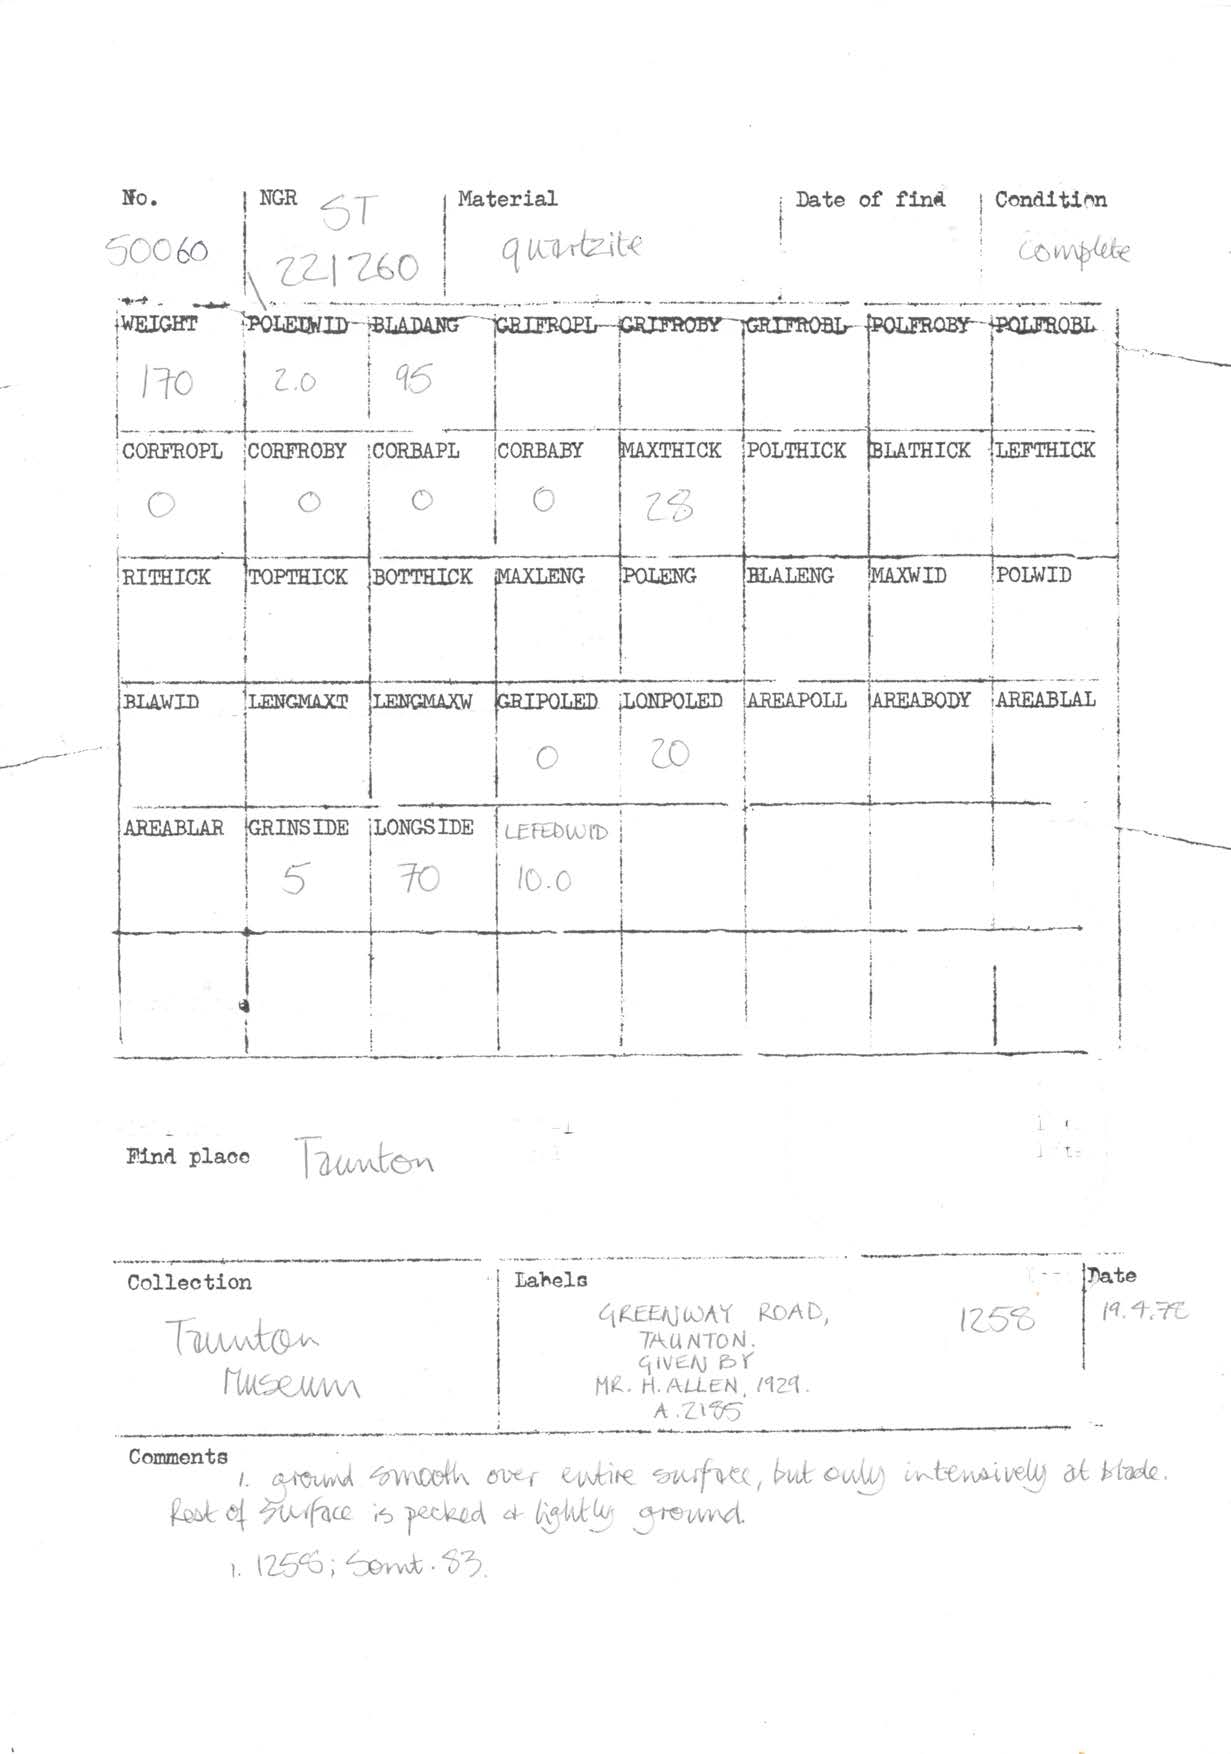 No. NGR ST Material Date of find Condition
50060 221260 quartzite complete
WEIGHT POLEDWID BLADANG GRIFROPL GRIFROBY GRIFROBL POLFROBY POLFROBL
170 2.0 95
CORFROPL CORFROBY CORBAPL CORBABY MAXTHICK POLTHICK BLATHICK LEFTHICK
0 0 0 0 28
RITHICK TOPTHICK BOTTHICK MAXLENG POLENG BLALENG MAXWID POLWID
BLAWID LENGMAXT LENGMAXW GRIPOLED LONPOLED AREAPOLL AREABODY AREABLAL
0 20
AREABLAR GRINSIDE LONGSIDE LEFEDWID
5 70 10.0
Find place Taunton
Collection Labels Date
GREENWAY ROAD, 1258 19.4.78
Taunton TAUNTON.
GIVEN BY
Museum MR. H. ALLEN, 1929.
A.2185
Comments
1. ground smooth over entire surface, but only intensively at blade.
Rest of surface is pecked & lightly ground.
1. 1258; Somt. 83.